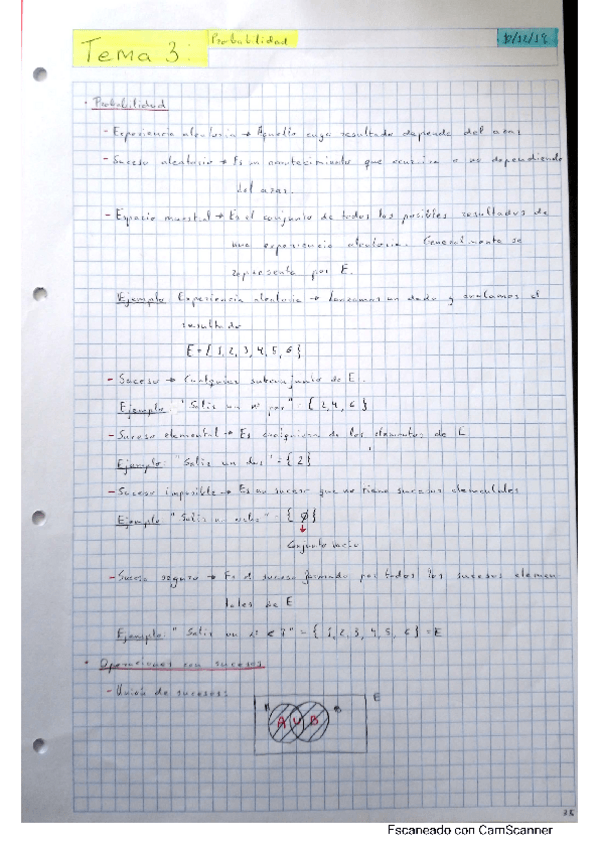 Tema 3: Probabilidad
· Probabilidad
- Experiencia aleatoria → Aquella cuyo resultado depende del azar
- Suceso aleatorio → Es un acontecimiento que ocurrira o no dependiendo
del azar.
- Espacio muestral → Es el conjunto de todos los posibles resultados de
una experiencia aleatoria. Generalmente se
representa por E.
Ejemplo Experiencia aleatoria → Lanzamos un dado y anotamos el
resultado
E = { 1, 2, 3, 4, 5, 6 }
- Suceso → Cualquier subconjunto de E.
Ejemplo: "Salir un nº par" = { 2, 4, 6 }
- Suceso elemental → Es cualquiera de los elementos de E
Ejemplo: "Salir un dos" = { 2 }
- Suceso imposible → Es un suceso que no tiene sucesos elementales
Ejemplo "Salir un ocho" = { ∅ }
↓
Conjunto vacio
- Suceso seguro → Es el suceso formado por todos los sucesos elemen
tales de E
Ejemplo: "Salir un nº < 7" = { 1, 2, 3, 4, 5, 6 } = E
· Operaciones con sucesos
- Unión de sucesos:
E
A B
A U B
Escaneado con CamScanner